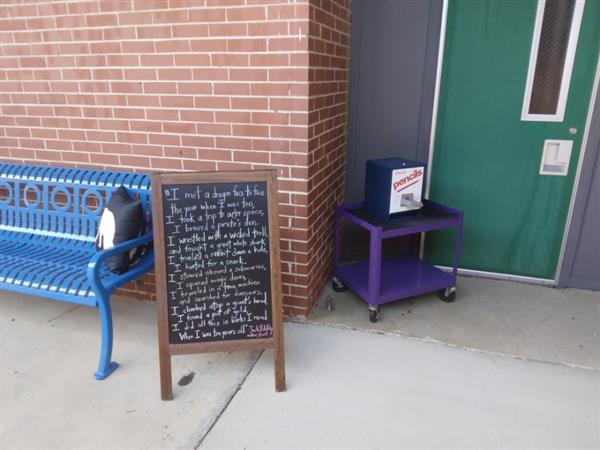 "I met a dragon face to face
the year when I was ten,
I took a trip to outer space,
I braved a pirate's den.
I wrestled with a wicked troll,
and fought a great white shark,
I trailed a rabbit down a hole,
I hunted for a snark.
I stowed aboard a submarine,
I opened magic doors,
I traveled in a time machine
and searched for dinosaurs.
I climbed atop a giant's head,
I found a pot of gold,
I did all this in books I read
When I was ten years old" Jack
pencils